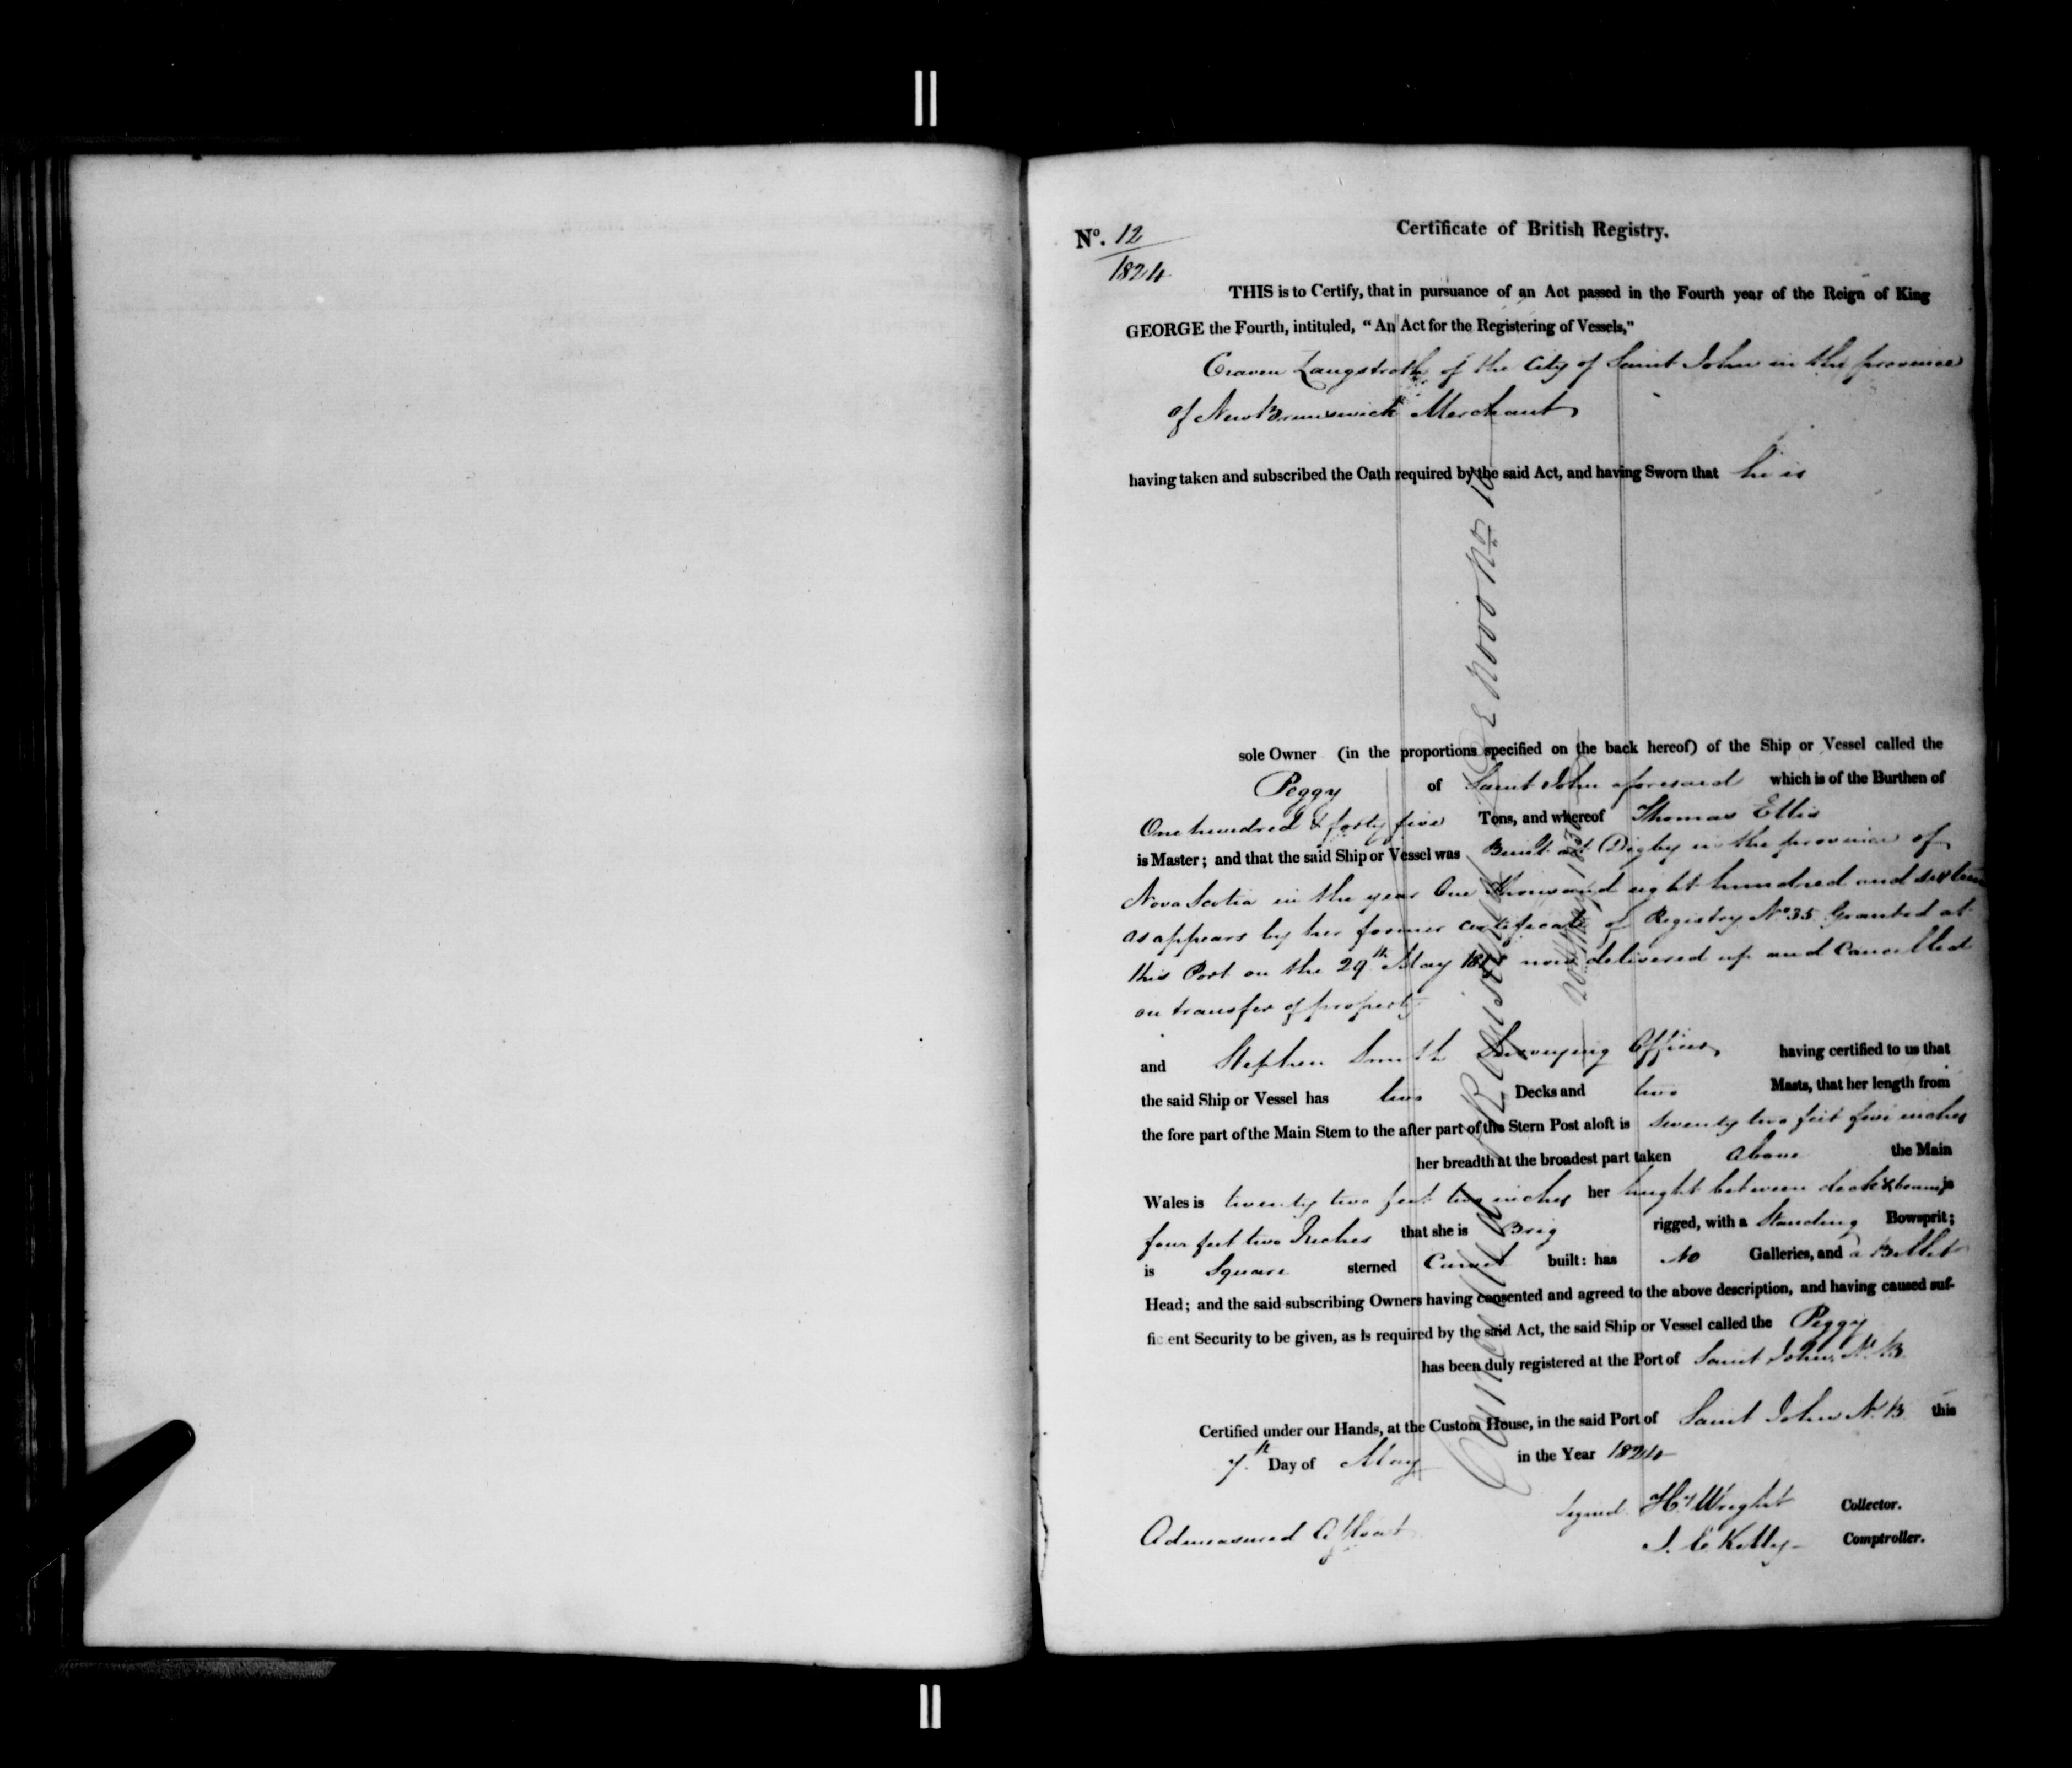 Nº. 12
1824
Certificate of British Registry.
THIS is to Certify, that in pursuance of an Act passed in the Fourth year of the Reign of King
GEORGE the Fourth, intituled, "An Act for the Registering of Vessels,"
Craven Langstroth of the City of Saint John in the province
of New Brunswick Merchant
having taken and subscribed the Oath required by the said Act, and having Sworn that he is
sole Owner (in the proportions specified on the back hereof) of the Ship or Vessel called the
Peggy of Saint John aforesaid which is of the Burthen of
One hundred & forty five Tons, and whereof Thomas Ellis
is Master; and that the said Ship or Vessel was Built at Digby in the province of
Nova Scotia in the year One thousand eight hundred and sixteen
as appears by her former certificate of Registry Nº 35 Granted at
this Port on the 29th May now delivered up and Cancelled
on transfer of property
and Stephen Smith Surveying Officer having certified to us that
the said Ship or Vessel has two Decks and two Masts, that her length from
the fore part of the Main Stem to the after part of the Stern Post aloft is seventy two feet five inches
her breadth at the broadest part taken above the Main
Wales is twenty two feet two inches her height between decks & beams is
four feet two Inches that she is Brig rigged, with a Standing Bowsprit;
is Square sterned Carvel built: has No Galleries, and a Billet
Head; and the said subscribing Owners having consented and agreed to the above description, and having caused suf-
fic ent Security to be given, as is required by the said Act, the said Ship or Vessel called the Peggy
has been duly registered at the Port of Saint John, N. B
Certified under our Hands, at the Custom House, in the said Port of Saint John N. B this
7th Day of May in the Year 1824
Signed Hy Wright Collector.
Admeasured Afloat
J. C Kelly Comptroller.
Cancelled Registered De Novo Nº 10
May 1830